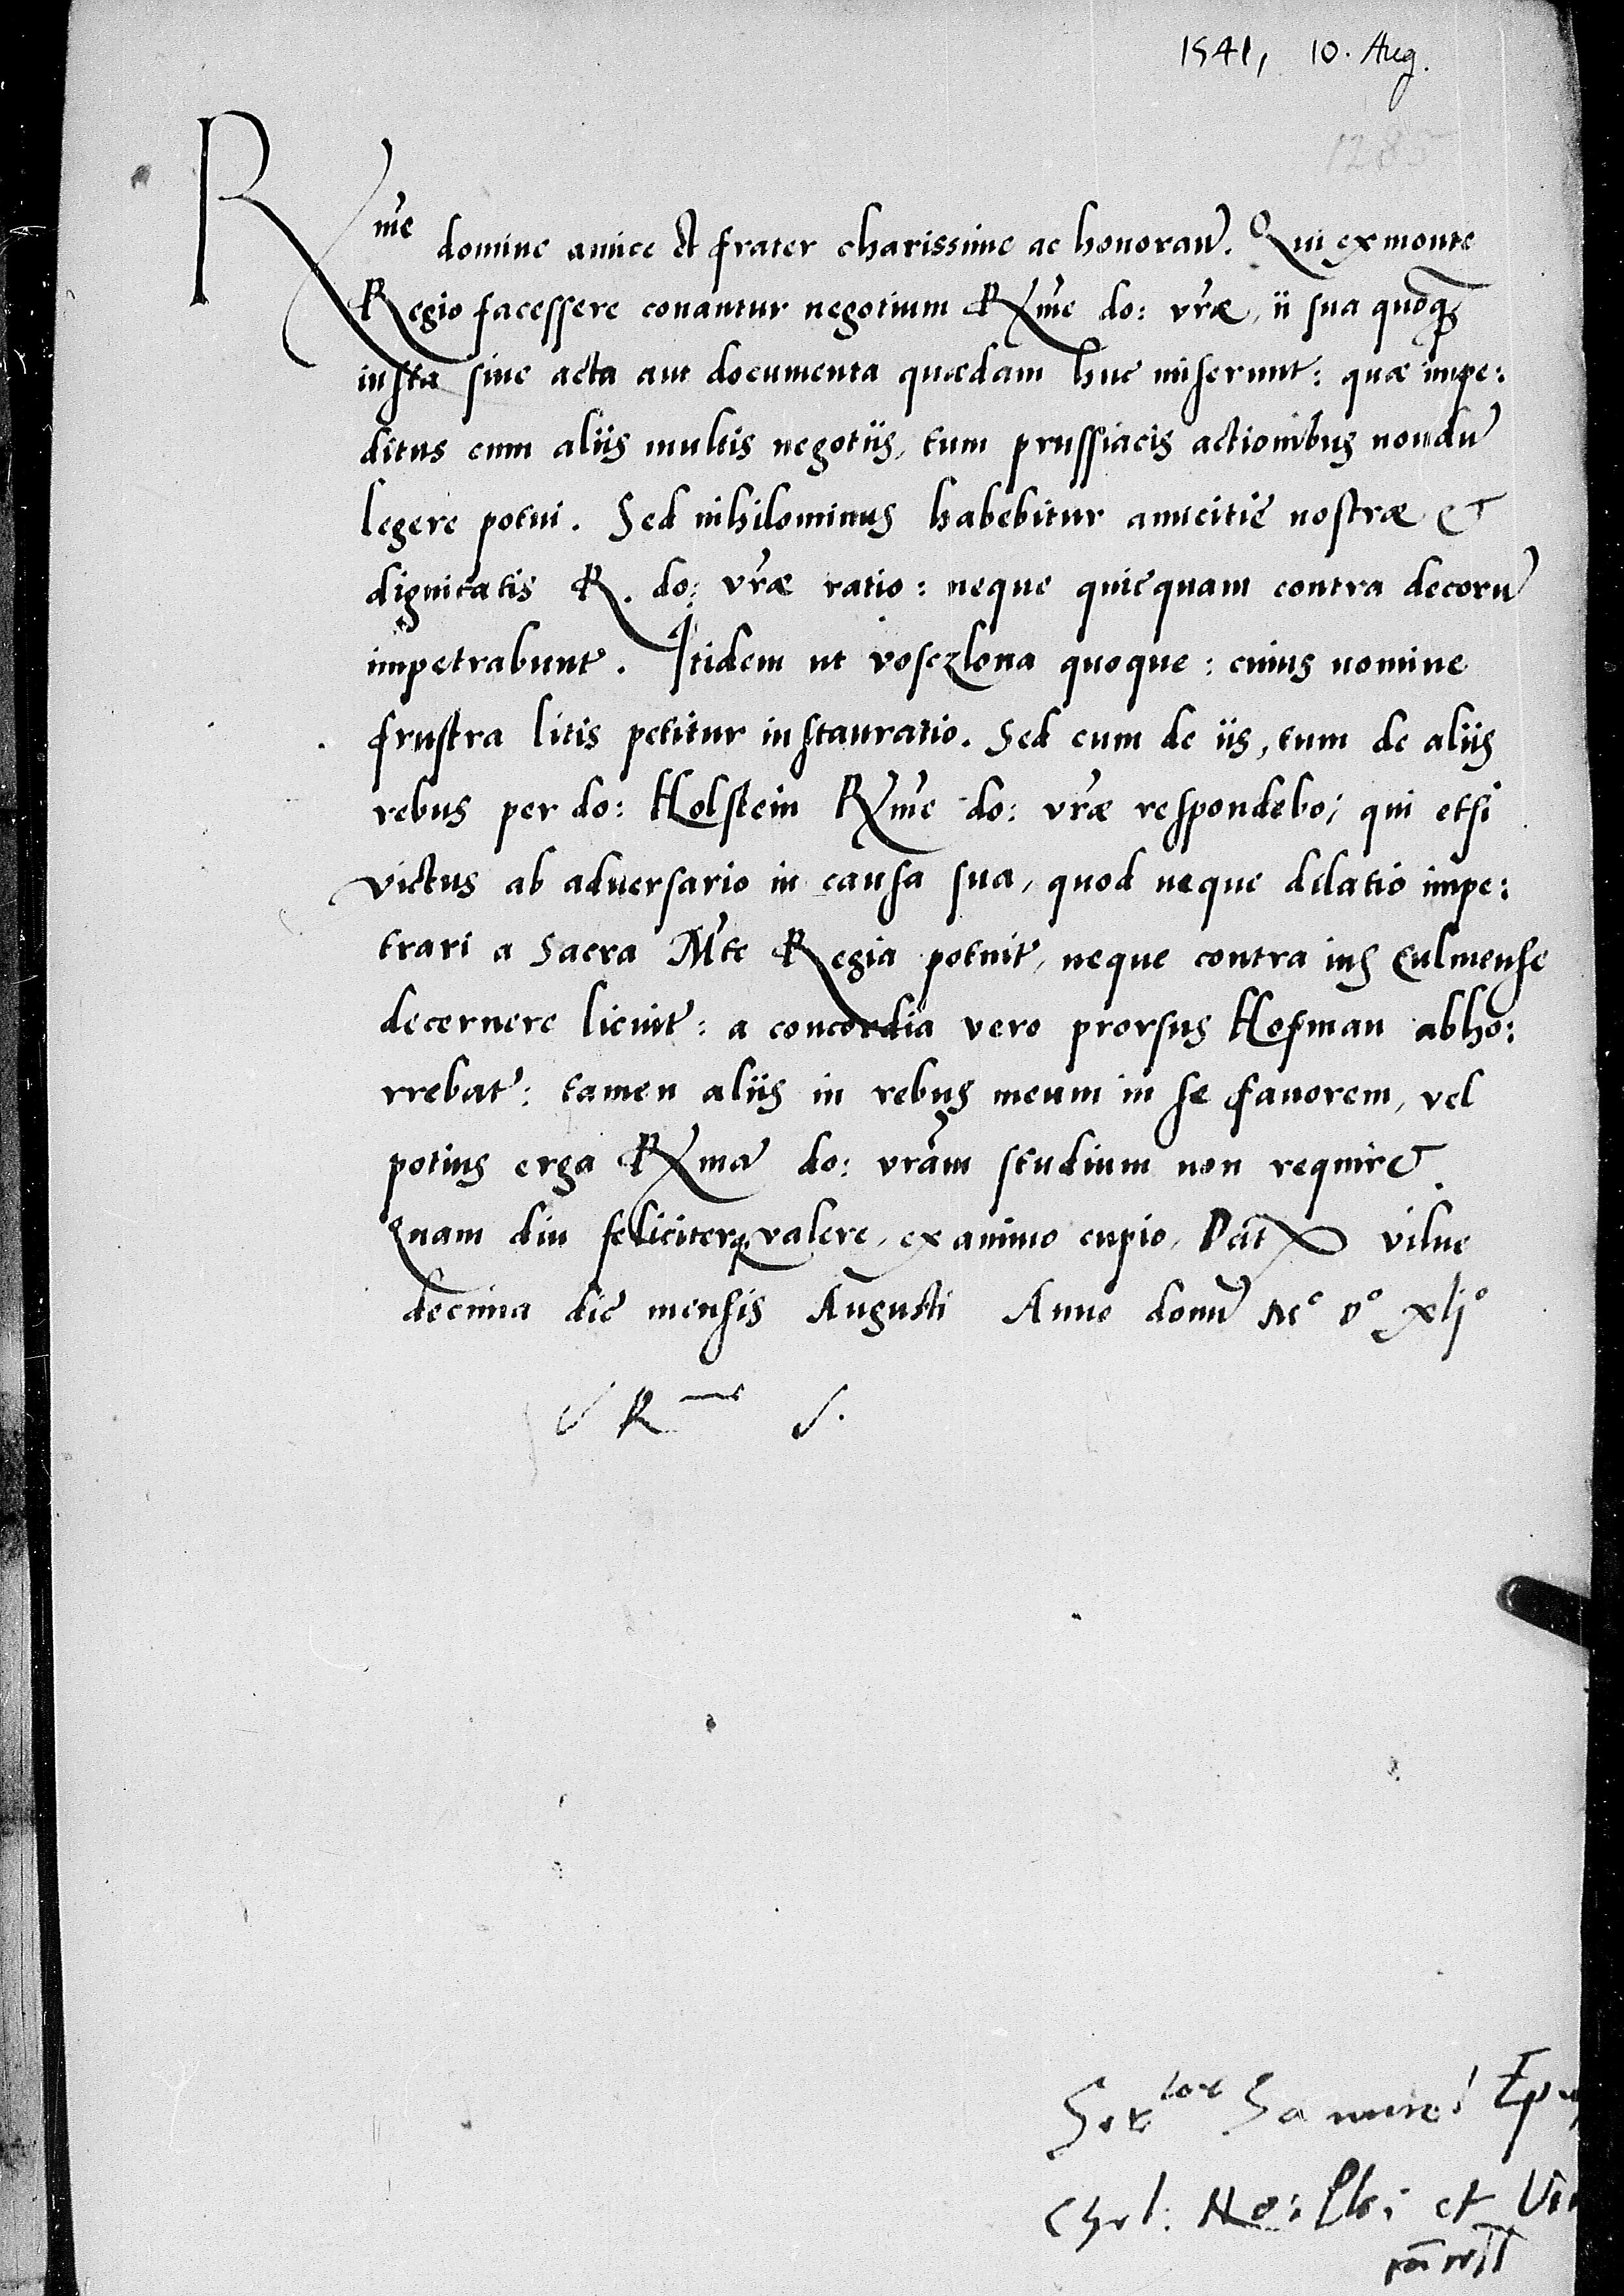 1541, 10. Aug.
1285
Rme domine amice et frater charissime ac honoran̄. Qui ex monte
Regio facessere conantur negotium Rme do: vr̄æ, ii sua quoq3
iusta siue acta aut documenta quædam huc miserunt: quæ impe:
ditus cum aliis multis negotiis, tum prussiacis actionibus nondū
legere potui. Sed nihilominus habebitur amicitię nostræ &
dignitatis R. do: vr̄æ ratio: neque quicquam contra decorū
impetrabunt. Itidem ut vosczlona quoque: cuius nomine
frustra litis petitur instauratio. Sed cum de iis, tum de aliis
rebus per do: Holstein Rme do: vr̄æ respondebo; qui etsi
victus ab aduersario in causa sua, quod neque dilatio impe:
trari a Sacra Mte Regia potuit, neque contra ius Culmense
decernere licuit: a concordia vero prorsus Hofman abho:
rrebat: tamen aliis in rebus meum in se fauorem, vel
potius erga Rmā do: vr̄am studium non requiret.
Quam diu feliciterq3 valere, ex animo cupio, Dat vilne
decima die mensis Augusti Anno domī Mo Do xljo
V Rme S.
Samuel Ep
et